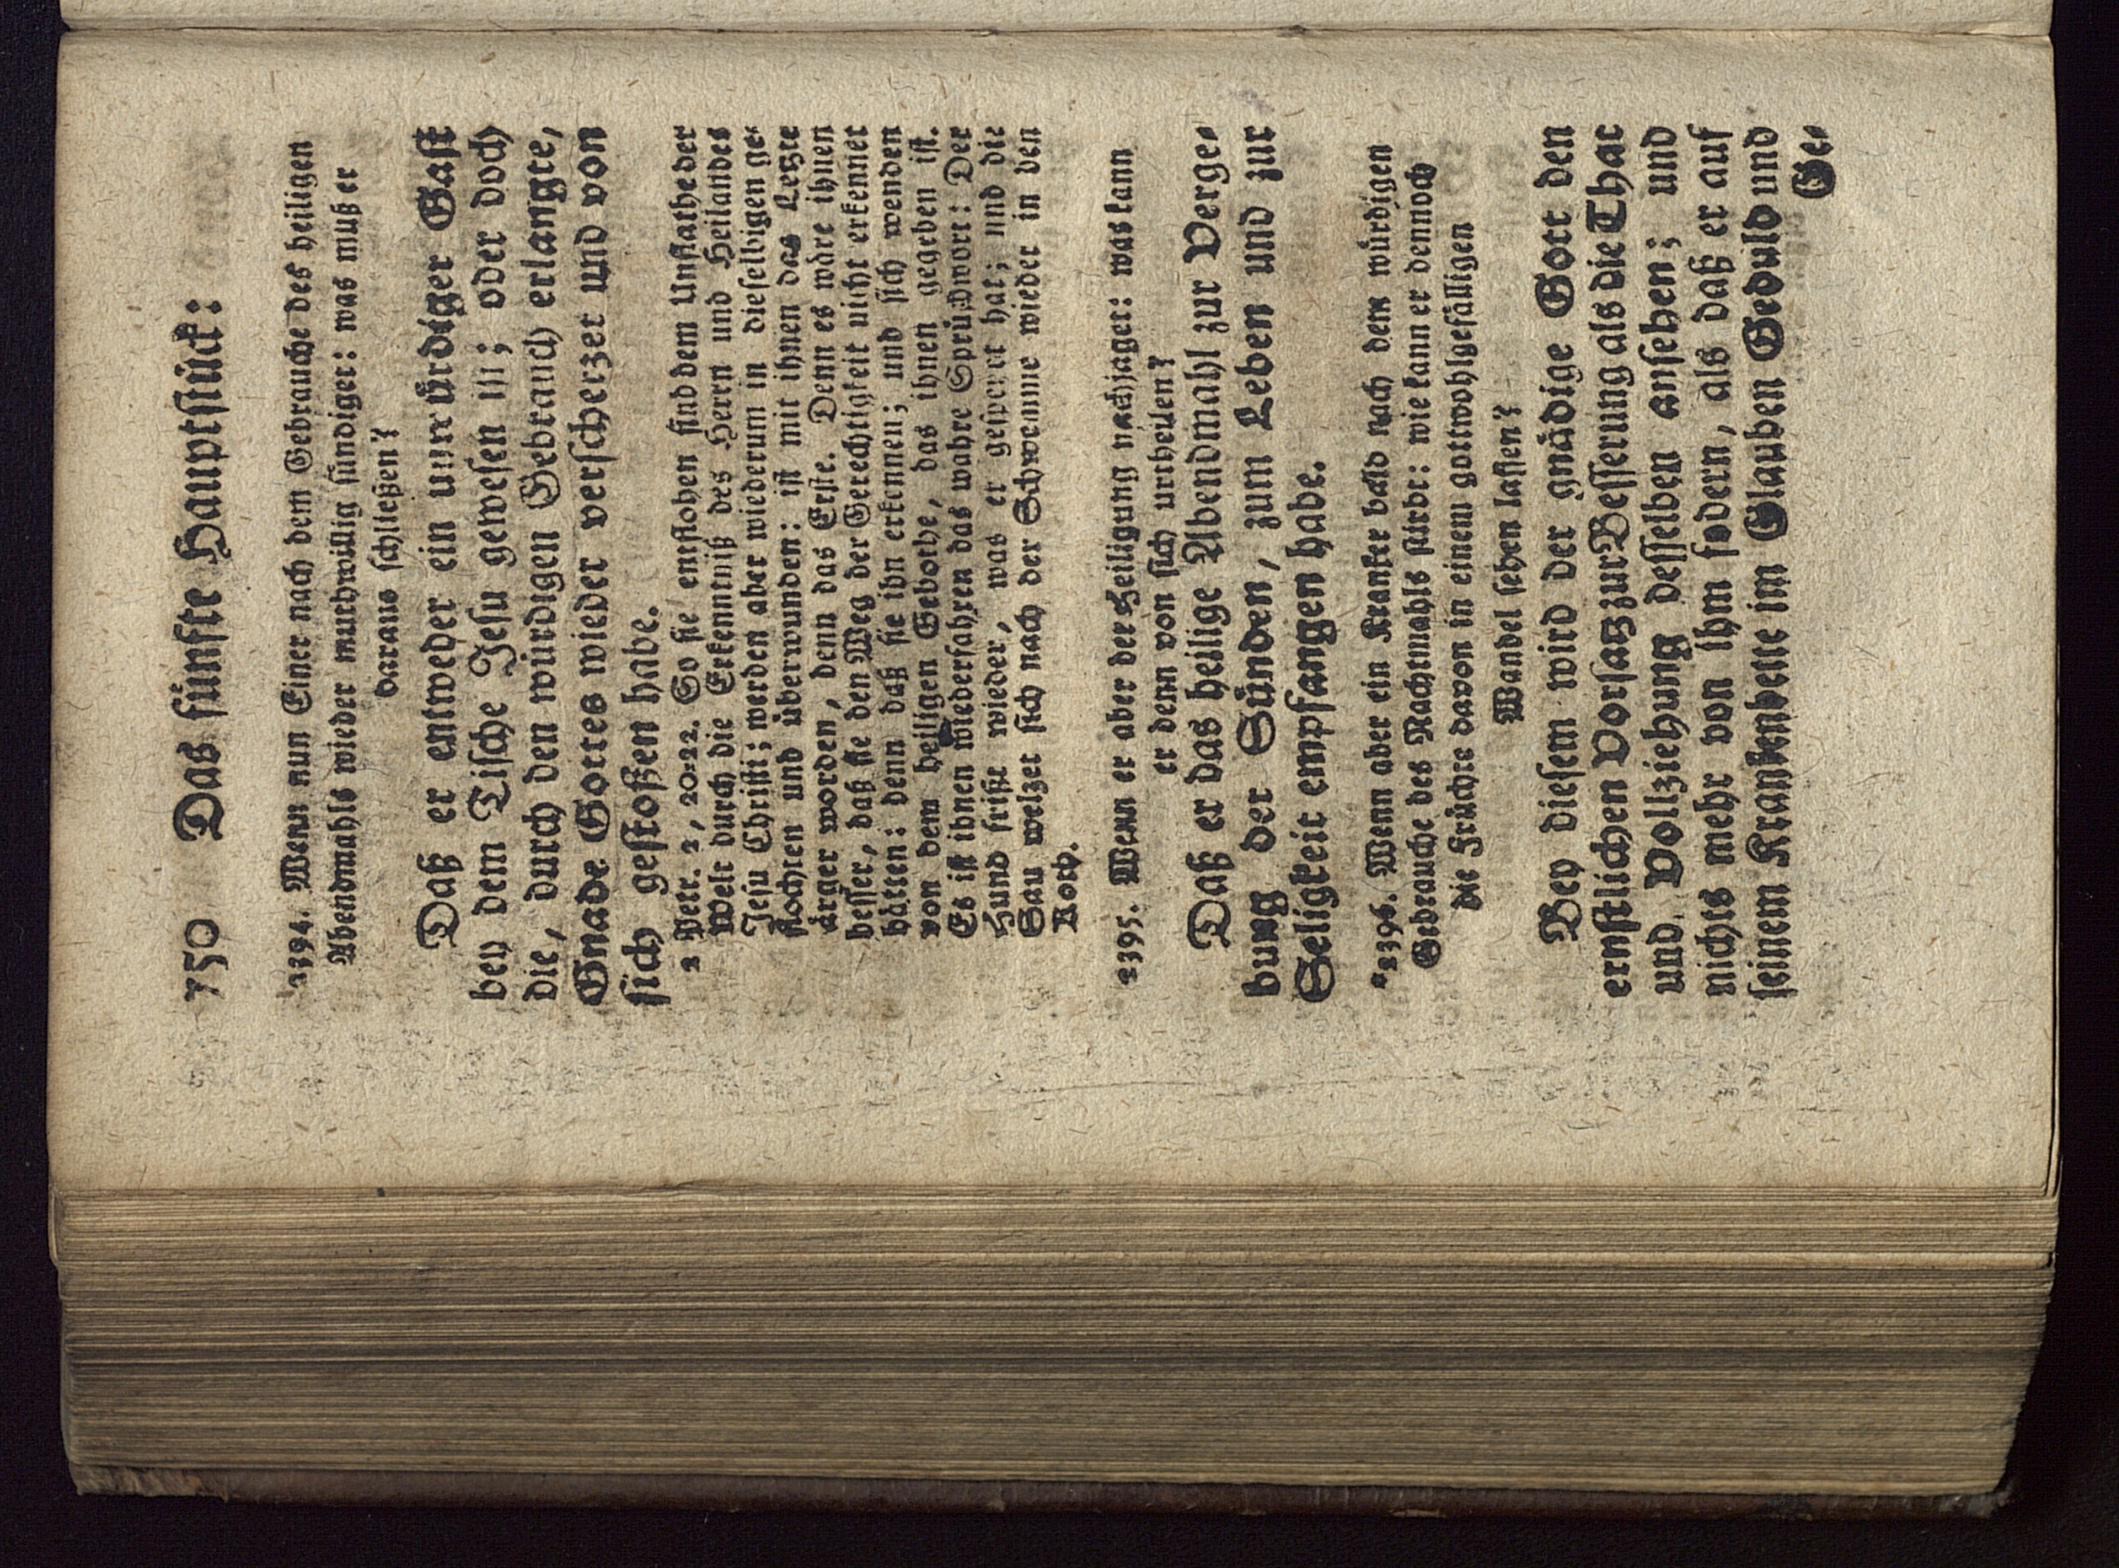 750 Das fünfte Hauptstück:
2394. Wenn nun Einer nach dem Gebrauche des heiligen
Abendmahls wieder muthwillig sündiget: was muß er
daraus schließen?
Daß er entweder ein unwürdiger Gast
bey dem Tische Jesu gewesen ist; oder doch
die, durch den würdigen Gebrauch erlangte,
Gnade Gottes wieder verscherzet und von
sich gestoßen habe.
2 Petr. 2, 20=22. So sie entflohen sind dem Unflathe der
Welt durch die Erkenntniß des Herrn und Heilandes
Jesu Christi; werden aber wiederum in dieselbigen ge=
flochten und überwunden: ist mit ihnen das Letzte
ärger worden, denn das Erste. Denn es wäre ihnen
besser, daß sie den Weg der Gerechtigkeit nicht erkennet
hätten: denn daß sie ihn erkennen; und sich wenden
von dem heiligen Gebothe, das ihnen gegeben ist.
Es ist ihnen wiederfahren das wahre Sprüchwort: Der
Hund frißt wieder, was er gespeyet hat; und die
Sau welzet sich nach der Schwemme wieder in den
Koth.
2395. Wenn er aber der Heiligung nachjaget: was kann
er denn von sich urtheilen?
Daß er das heilige Abendmahl zur Verge=
bung der Sünden, zum Leben und zur
Seligkeit empfangen habe.
*2396. Wenn aber ein Kranker bald nach dem würdigen
Gebrauche des Nachtmahls stirbt: wie kann er dennoch
die Früchte davon in einem gottwohlgefälligen
Wandel sehen lassen?
Bey diesem wird der gnädige Gott den
ernstlichen Vorsatz zur Besserung als die That
und Vollziehung desselben ansehen; und
nichts mehr von ihm fodern, als daß er auf
seinem Krankenbette im Glauben Geduld und
Ge=